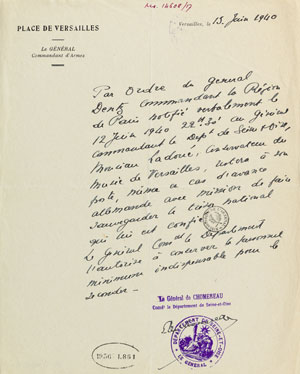 Ms. 16608/17
PLACE DE VERSAILLES
Versailles, le 13 Juin 1940
Le GÉNÉRAL
Commandant d'Armes
Par Ordre du général
Dentz commandant la Région
de Paris notifié verbalement le
12 Juin 1940 22h30 au Général
commandant le Dept de Seine & Oise,
Monsieur Ladoué, Conservateur du
Musée de Versailles, restera à son
poste, même en cas d'avance
allemande avec mission de faire
sauvegarder le trésor national
qui lui est confié
Le Général Comdt le Département
l'autorise à conserver le personnel
minimum indispensable pour le
seconder
Le Général de CHOMEREAU
Comdt le Département de Seine-et-Oise
DÉPARTEMENT DE SEINE-ET-OISE
LE GÉNÉRAL